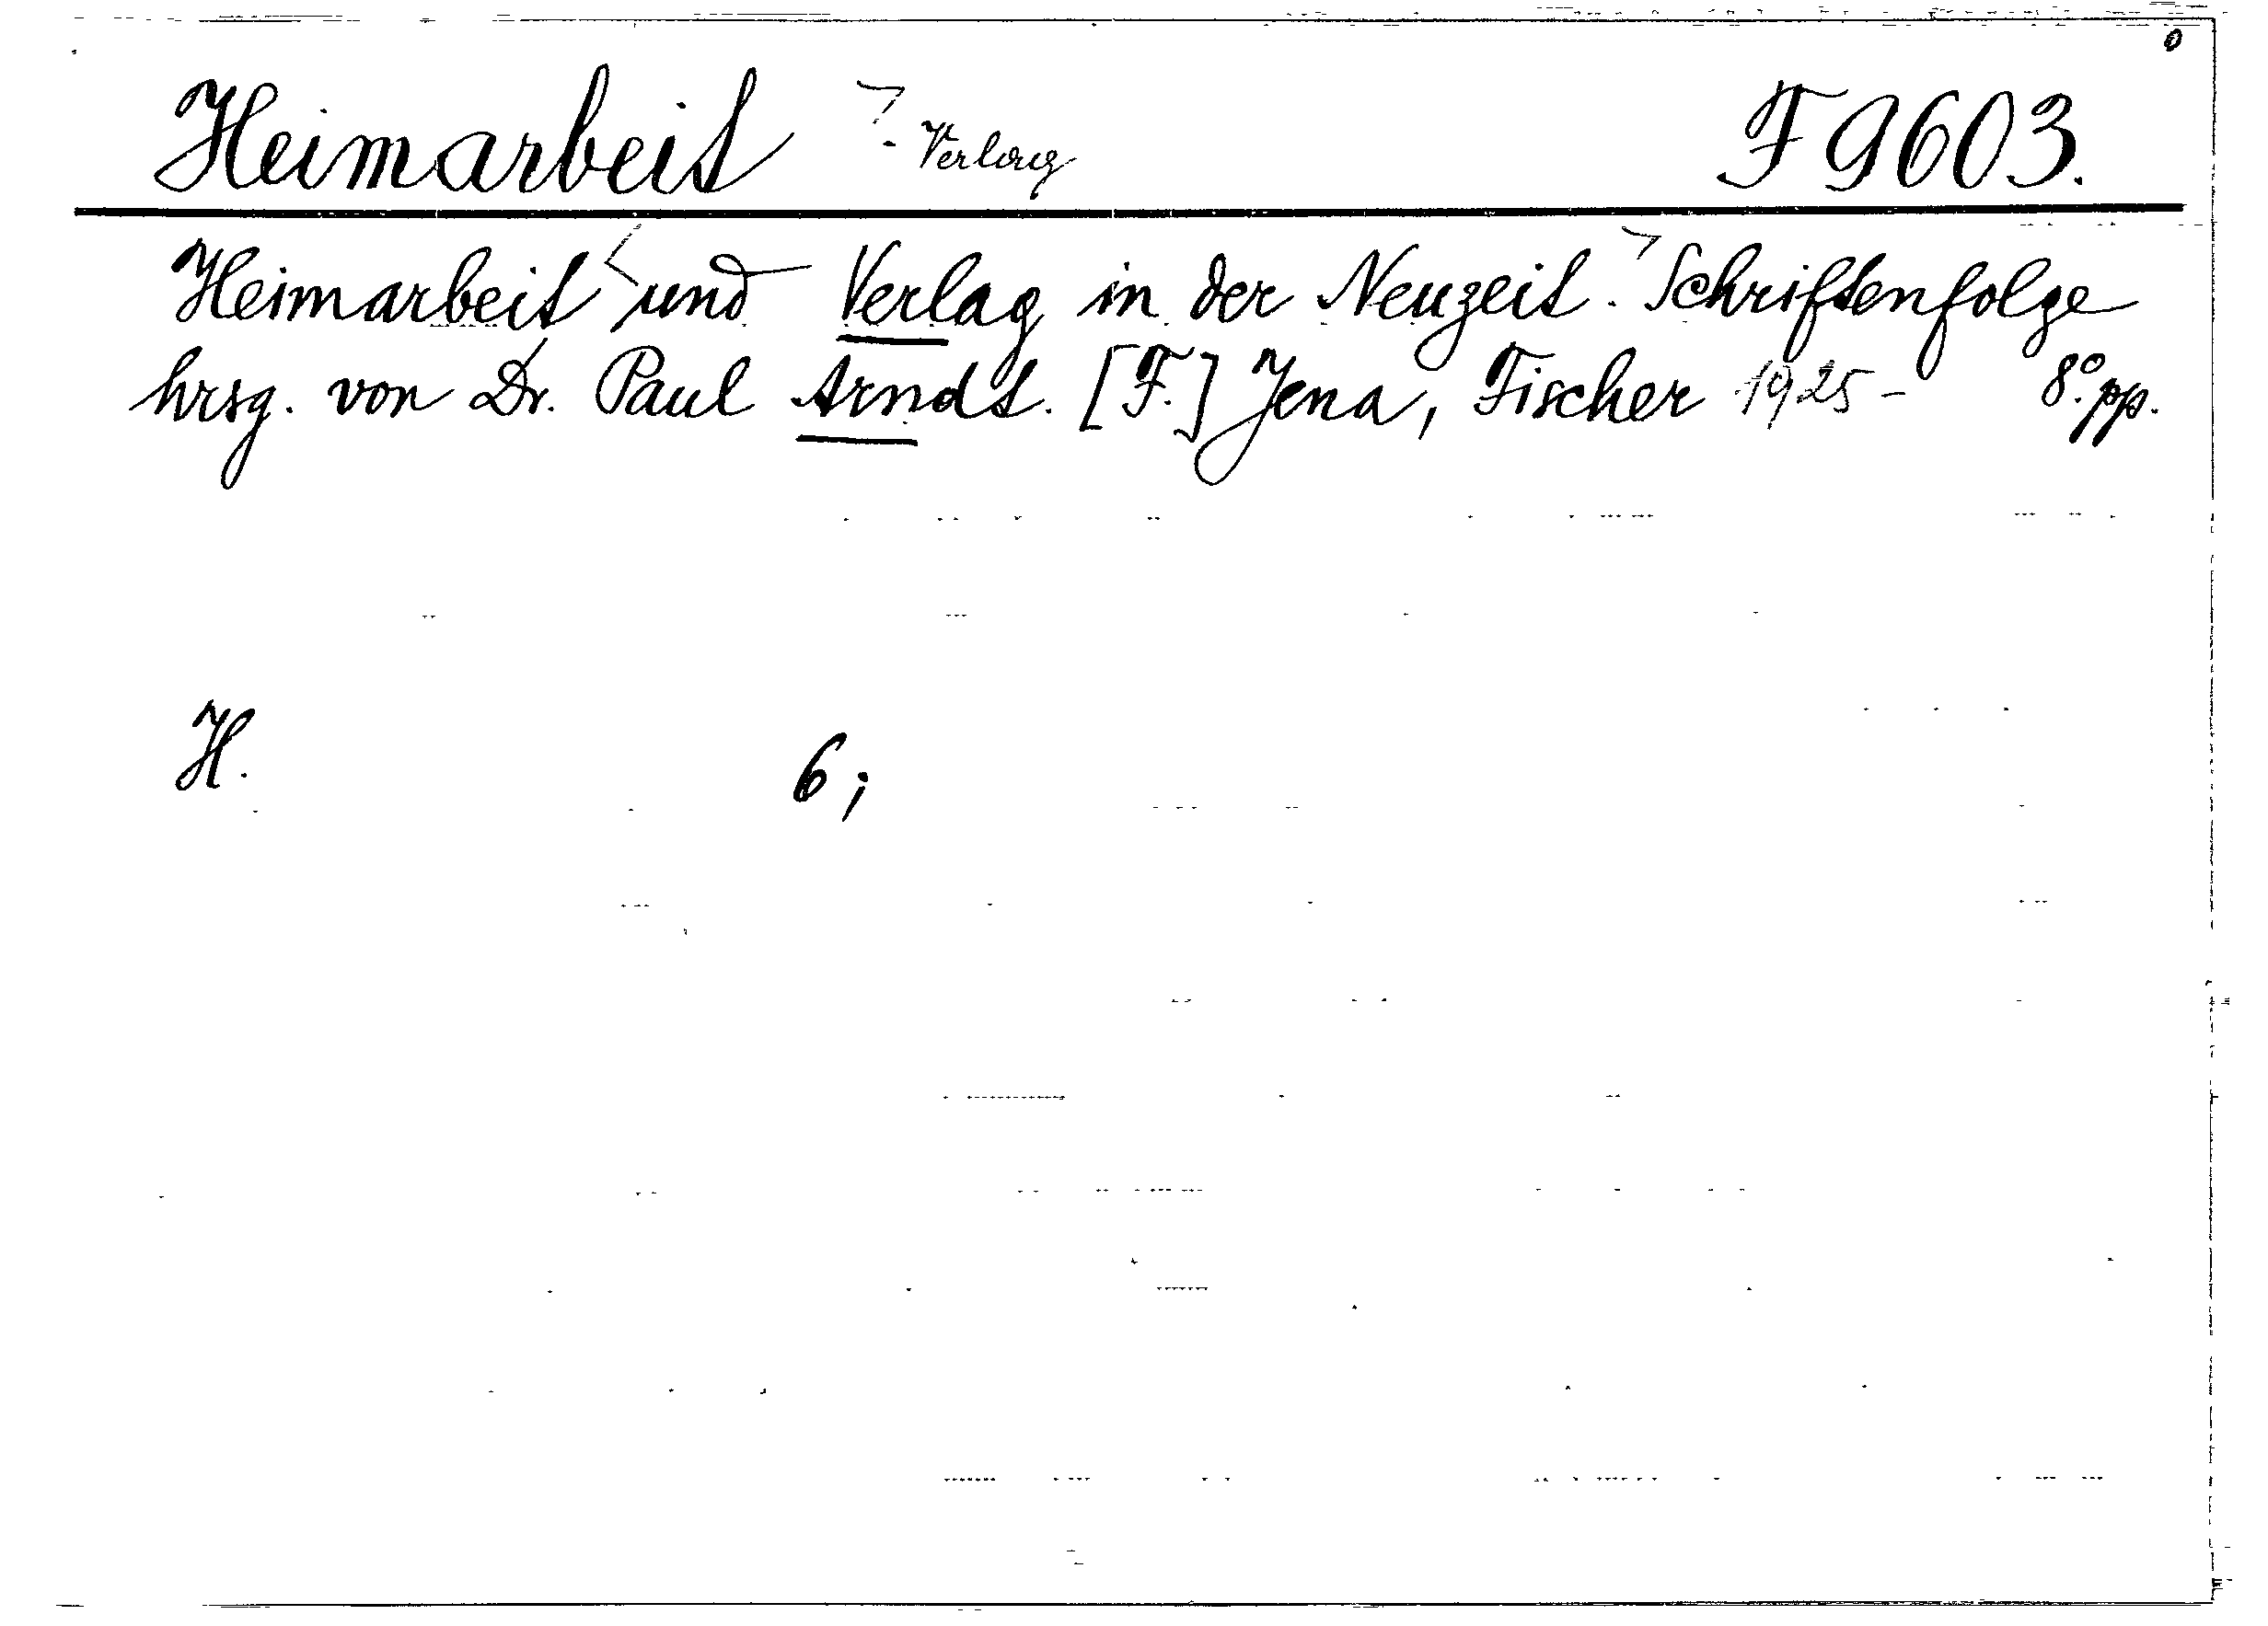 Heimarbeit - Verlag F 9603.
Heimarbeit und Verlag in der Neuzeit. Schriftenfolge
hrsg. von Dr. Paul Arndt. [F.] Jena, Fischer 1925- 8°. pp.
H. 6;